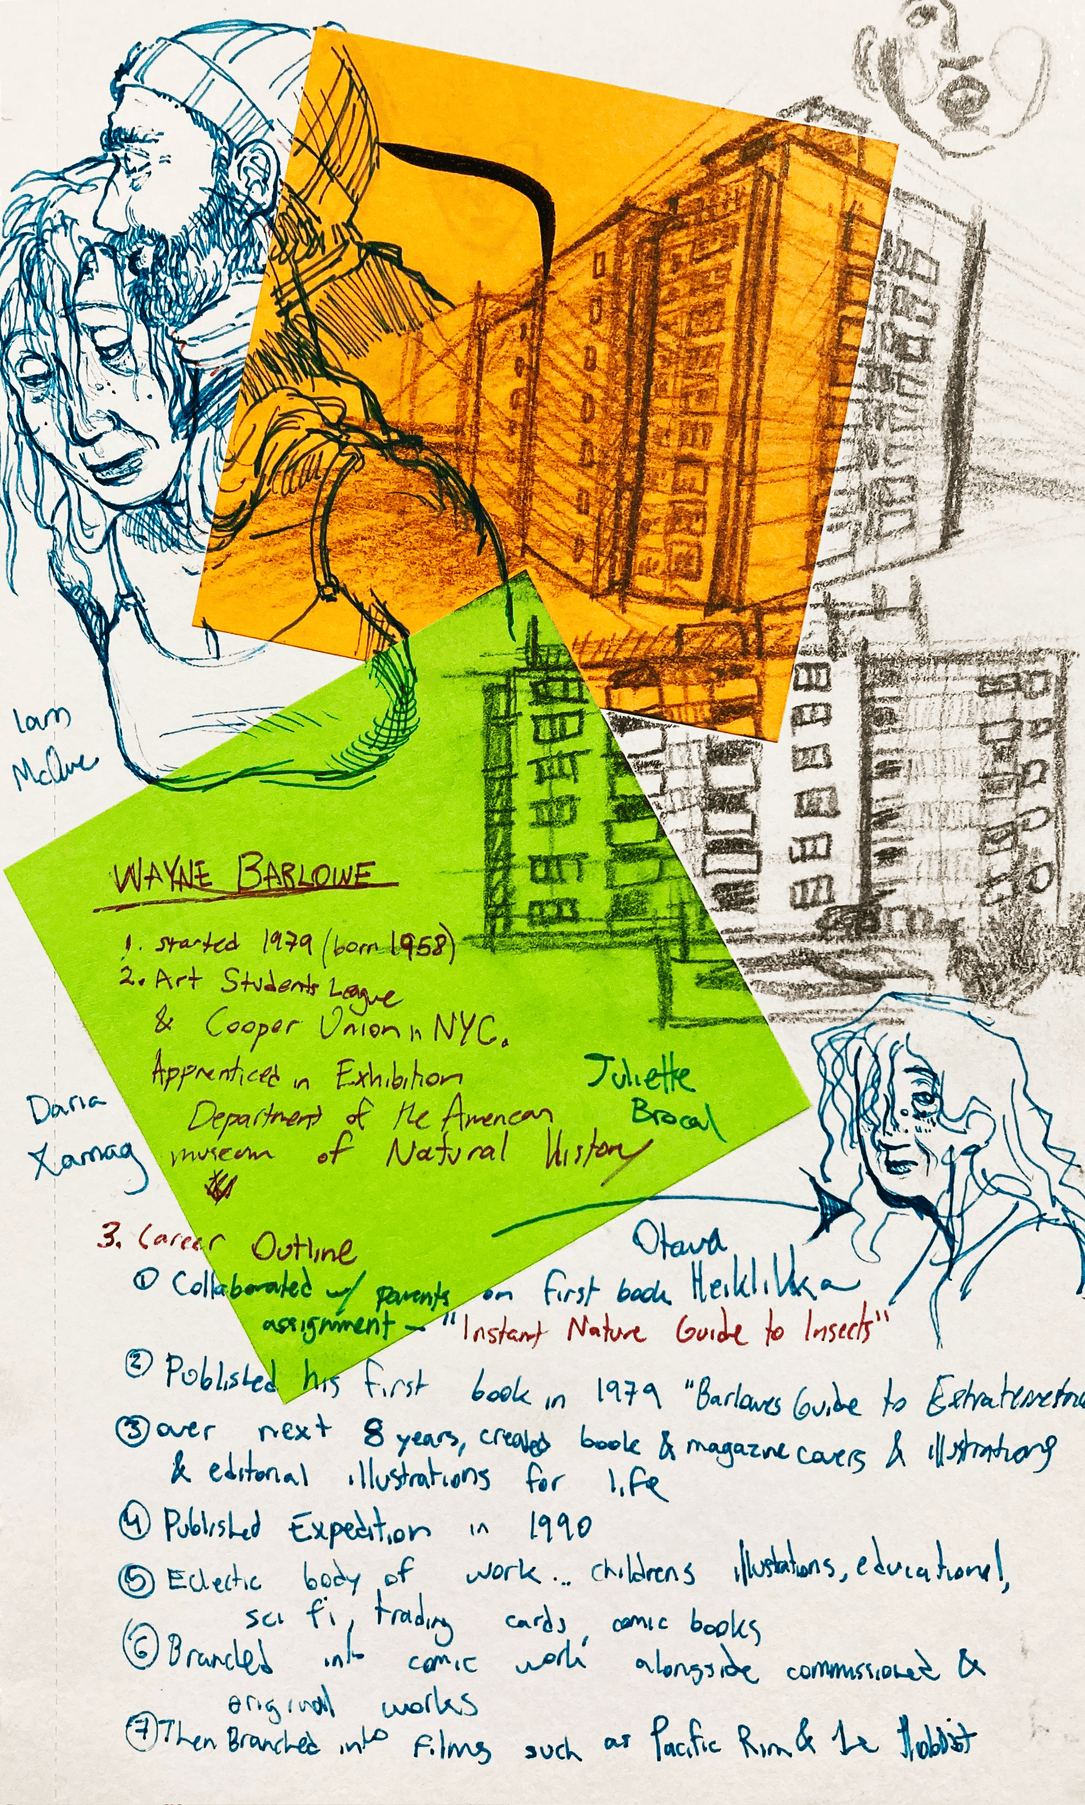 Iam
WAYNE BARLOWE
1. started 1979 (born 1958)
2. Art Students League
& Cooper Union in NYC.
Apprenticed in Exhibition
Department of the American
museum of Natural History
Juliette
Brocal
Daria
3. Career Outline
① Collaborated w/ parents on first book
assignment – "Instant Nature Guide to Insects"
Otava
② Published his first book in 1979 "Barlowes Guide to
③ over next 8 years, created book & magazine covers & illustrations
& editorial illustrations for life
④ Published Expedition in 1990
⑤ Eclectic body of work... childrens illustations, educational,
sci fi, trading cards, comic books
⑥ Branched into comic work alongside commissioned &
original works
⑦ Then Branched into films such as Pacific Rim & The Hobbit